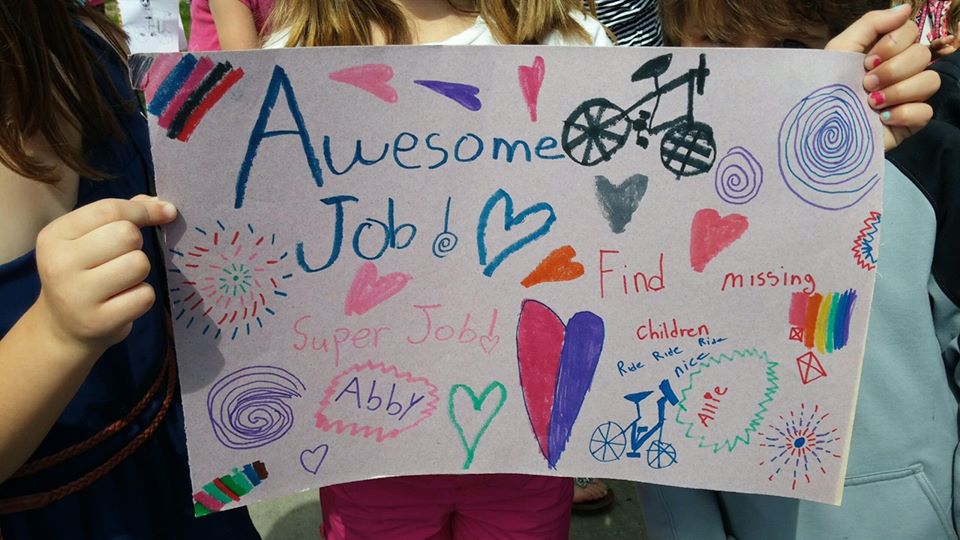 Awesome
Job!
Find missing
Children
Super Job!
Ride Ride Ride
nice
Abby
Allie